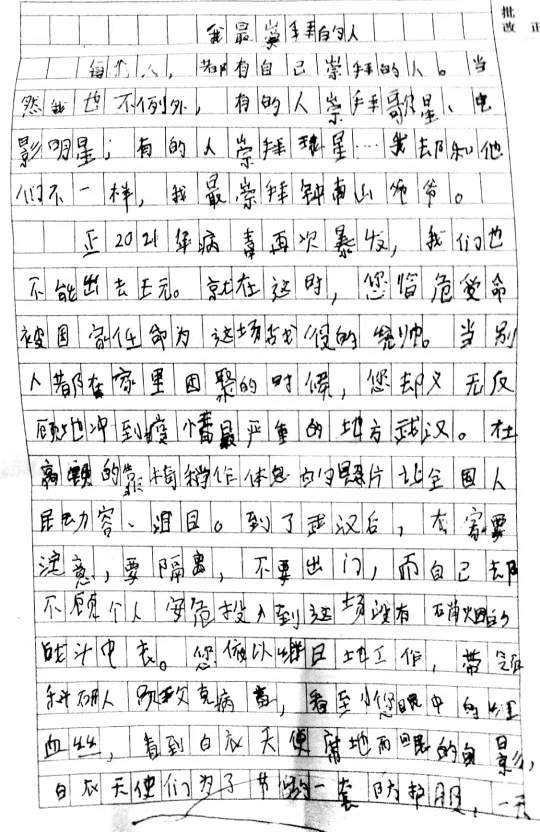 批改 正
我最崇拜的人
每个人，都有自己崇拜的人。当
然我也不例外，有的人崇拜歌星、电
影明星；有的人崇拜球星…我却和他
们不一样，我最崇拜钟南山爷爷。
正2021年病毒再次暴发，我们也
不能出去玩。就在这时，您临危受命
被国家任命为这场战役的统帅。当别
人都在家里团聚的时候，您却义无反
顾地冲到疫情最严重的地方武汉。在
高铁的靠椅稍作休息的照片让全国人
民动容、泪目。到了武汉后，在家要
注意，要隔离，不要出门，而自己却
不顾个人安危投入到这场没有硝烟的
战斗中去。您夜以继日地工作，带领
科研人员攻克病毒，看到您眼中的红
血丝，看到白衣天使席地而眠的身影，
白衣天使们为了节约一套防护服，一天